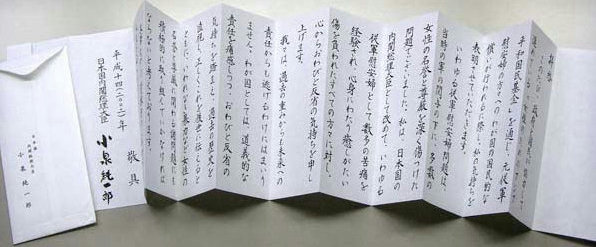 拝啓
このたび、政府と国民が
平和国民基金」を通じ、元従軍
慰安婦の方々へのわが国の国民的な
償いが行われるに際し、私の気持ちを
表明させていただきます。
いわゆる従軍慰安婦問題は、
当時の軍の関与の下に、多数の
女性の名誉と尊厳を深く傷つけた
問題でございました。私は、日本国の
内閣総理大臣として改めて、いわゆる
従軍慰安婦として数多の苦痛を
経験され、心身にわたり癒しがたい
傷を負われたすべての方々に対し、
心からおわびと反省の気持ちを申し
上げます。
我々は、過去の重みからも未来への
責任からも逃げるわけにはまいり
ません。わが国としては、道義的な
責任を痛感しつつ、おわびと反省の
気持ちを踏まえ、過去の歴史を
直視し、正しくこれを後世に伝えるとと
もに、いわれなき暴力など女性の
名誉と尊厳に関わる諸問題にも
積極的に取り組んでいかなければ
ならないと考えております。
敬具
平成十四(二〇〇二)年
日本国内閣総理大臣
小泉純一郎
日本国
内閣総理大臣
小泉純一郎